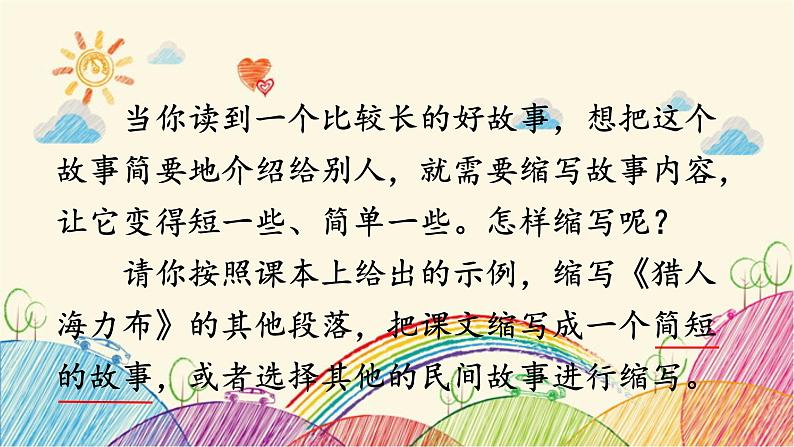 当你读到一个比较长的好故事，想把这个
故事简要地介绍给别人，就需要缩写故事内容，
让它变得短一些、简单一些。怎样缩写呢？
请你按照课本上给出的示例，缩写《猎人
海力布》的其他段落，把课文缩写成一个简短
的故事，或者选择其他的民间故事进行缩写。